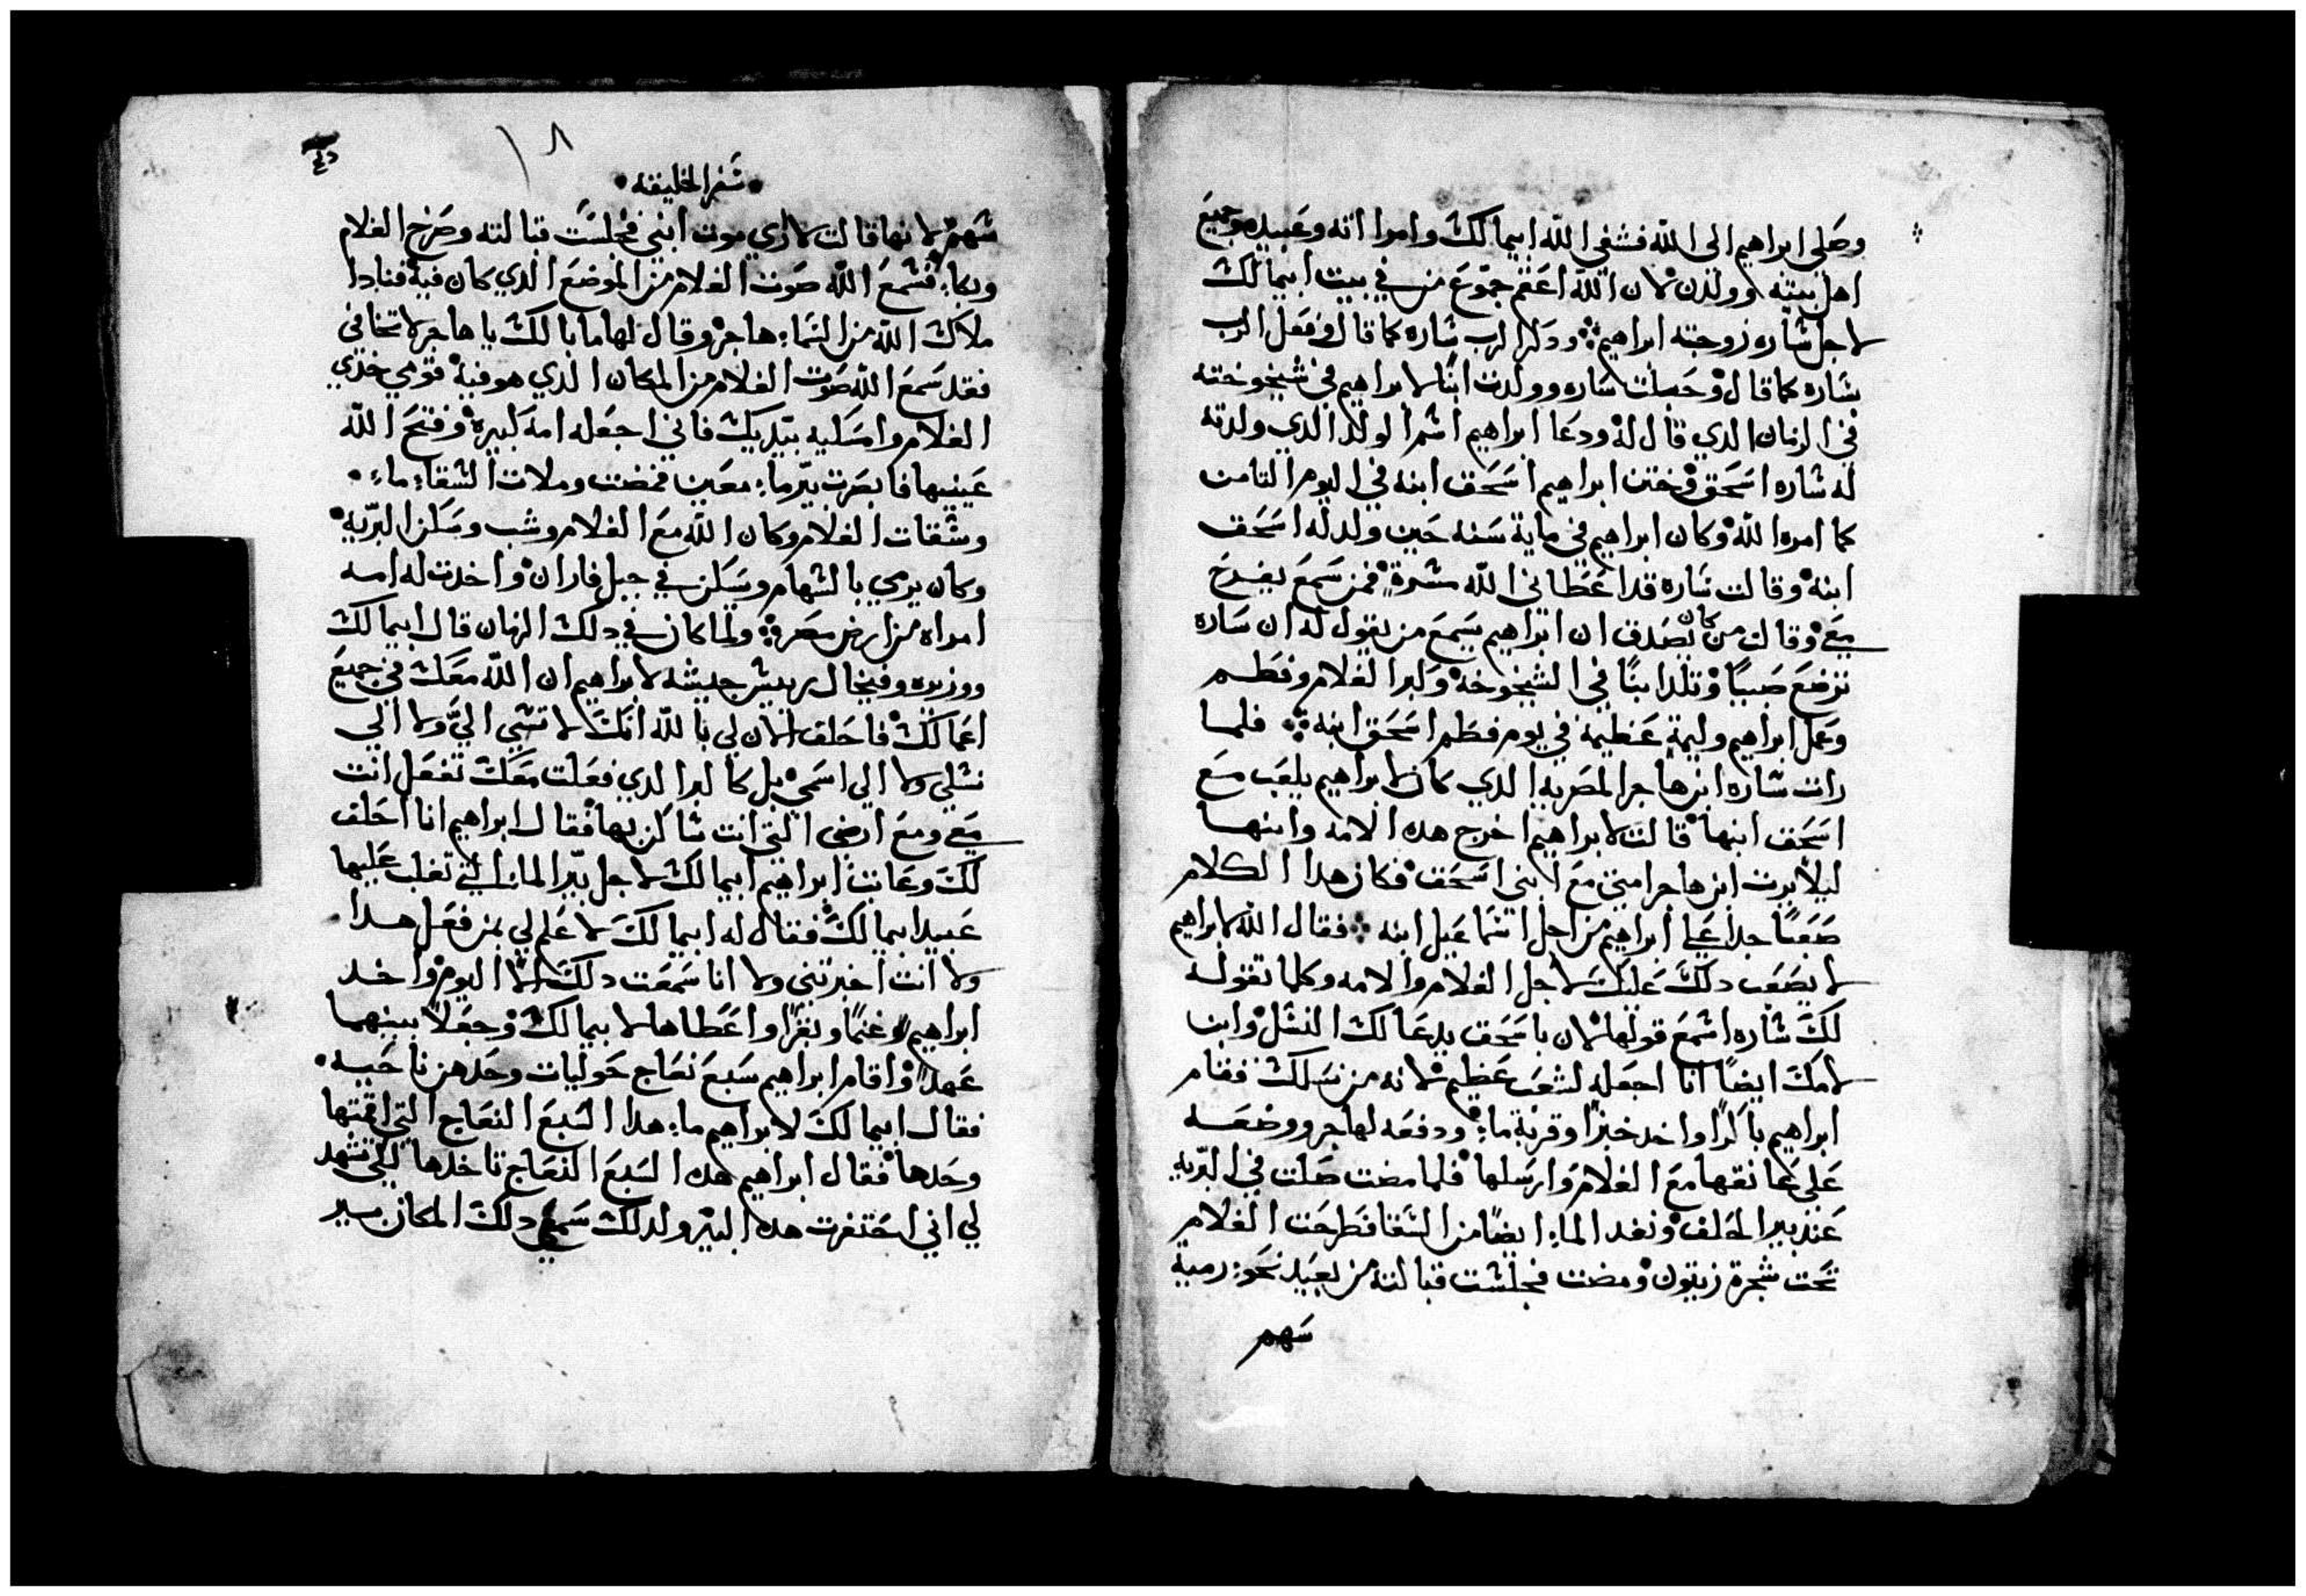 وصلى ابراهيم الى الله فشفى الله ابيمالك وامراته وعبيده وجميع
اهل بيته وولدن لان الله اعقم جموع من في بيت ابيمالك
لاجل ساره زوجته ابراهيم وذكر الرب ساره كما قال وفعل الرب
بساره كما قال وحبلت ساره وولدت ابنًا لابراهيم في شيخوخته
في الزمان الدي قال له ودعا ابراهيم اسم الولد الدي ولدته
له ساره اسحق وختن ابراهيم اسحق ابنه في اليوم التامن
كما امره الله وكان ابراهيم في ماية سنه حين ولد له اسحق
ابنه وقالت ساره قد اعطاني الله مسرة فمن سمع يفرح
معي وقالت من كان يصدق ان ابراهيم يسمع من يقول له ان ساره
ترضع صبيًا وتلد ابنًا في الشيخوخه وكبر الغلام وفطم
وعمل ابراهيم وليمة عظيمة في يوم فطم اسحق ابنه فلما
رات ساره ابن هاجر المصريه الدي كان لابراهيم يلعب مع
اسحق ابنها قالت لابراهيم اخرج هده الامه وابنها
ليلا يرت ابن هاجر امتي مع ابني اسحق فكان هدا الكلام
صعبًا جدا على ابراهيم من اجل اسماعيل ابنه فقال الله لابراهيم
لا يصعب دلك عليك لاجل الغلام والامه وكلما تقوله
لك ساره اسمع قولها لان باسحق يدعا لك النسل وابن
لامك ايضًا انا اجعله لشعب عظيم لانه من نسلك فقام
ابراهيم باكرًا واخد خبزًا وقربة ماء ودفعه لهاجر ووضعه
على عانقها مع الغلام وارسلها فلما مضت ضلت في البريه
عند بير الحلف ونفد الماء ايضًا من السقا فطرحت الغلام
تحت شجرة زيتون ومضت فجلست قبالته من بعيد نحو رمية
سهم
سفر الخليقه
سهم لانها قالت لا اري موت ابني فجلست قبالته وصرخ الغلام
وبكاء فسمع الله صوت الغلام من الموضع الدي كان فيه فنادا
ملاك الله من السماء هاجر وقال لها ما بالك يا هاجر لا تخافي
فقد سمع الله صوت الغلام من المكان الدي هو فيه قومي خدي
الغلام وامسكيه بيديك فاني اجعله امه كبيره وفتح الله
عينيها فابصرت بير ماء معين فمضت وملات السقاء ماء
وسقات الغلام وكان الله مع الغلام وشب وسكن البريه
وكان يرمي بالسهام وسكن في جبل فاران واخدت له امه
امراه من ارض مصر ولما كان في دلك الزمان قال ابيمالك
ووزيره وفيخال رييس جيشه لابراهيم ان الله معك في جميع
اعمالك فاحلف الان لي بالله انك لا تسي الي ولا الي
نسلي ولا الي اسمي بل كالبر الدي فعلت معك تفعل انت
معي ومع ارضي التي انت ساكن بها فقال ابراهيم انا احلف
لك وعاتب ابراهيم ابيمالك لاجل بير الماء التي تغلب عليها
عبيد ابيمالك فقال له ابيمالك لا علم لي بمن فعل هدا
ولا انت اخبرتني ولا انا سمعت دلك الا اليوم واخد
ابراهيم غنمًا وبقرًا واعطاها لابيمالك وجعلا بينهما
عهدًا واقام ابراهيم سبع نعاج حوليات وحدهن ناحيه
فقال ابيمالك لابراهيم ما هدا السبع النعاج التي اقمتها
وحدها فقال ابراهيم هده السبع النعاج تاخدها لكي تشهد
لي اني احتفرت هده البير ولدلك سمي دلك المكان بير